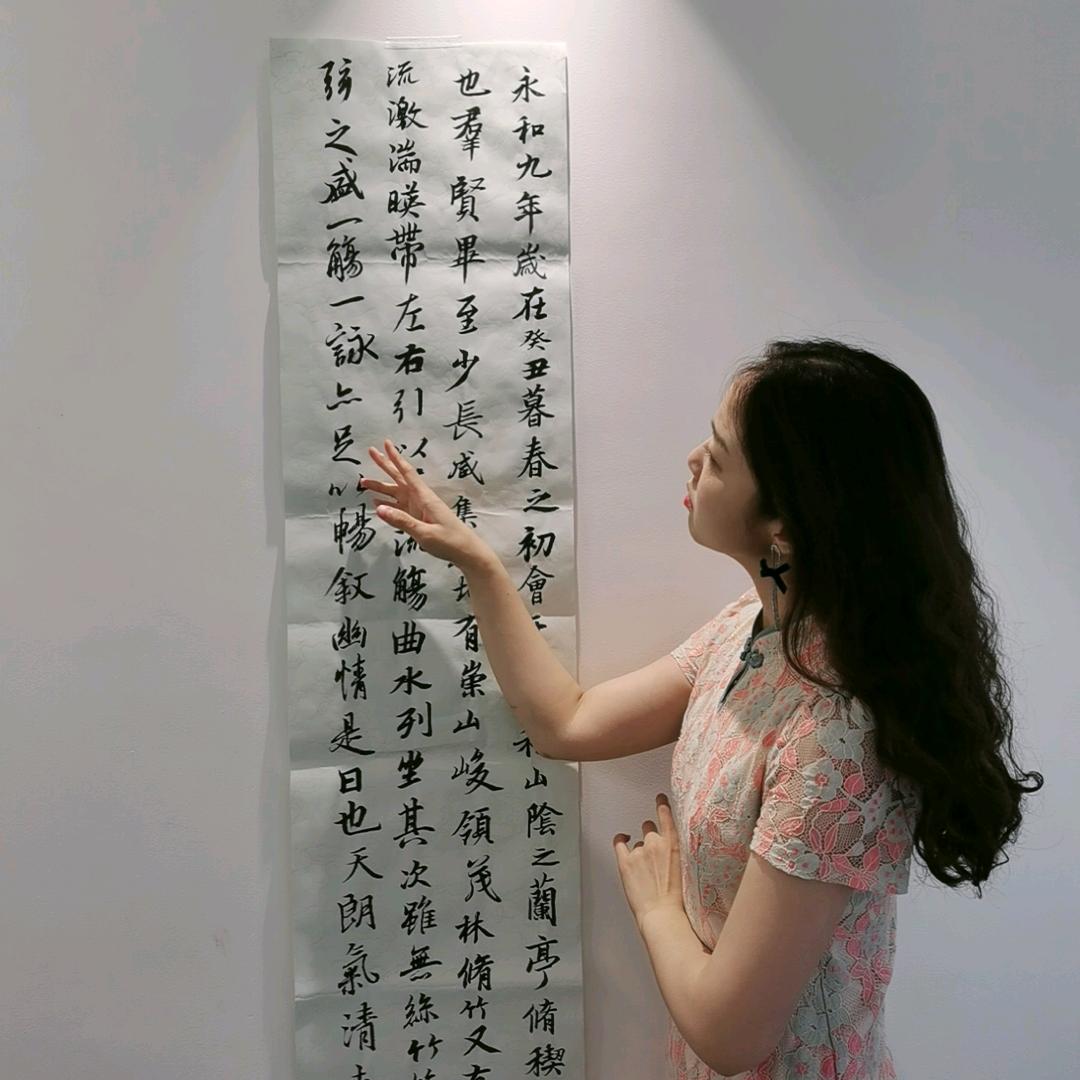 永和九年歲在癸丑暮春之初會山陰之蘭亭脩稧
也羣賢畢至少長咸集有崇山峻領茂林脩竹又
流激湍暎帶左右引流觴曲水列坐其次雖無絲竹
弦之盛一觴一詠亦足暢叙幽情是日也天朗氣清